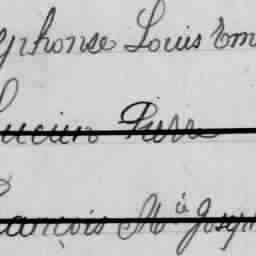 phonse Louis Em
Lucien Pierre
ançois M ie Joseph